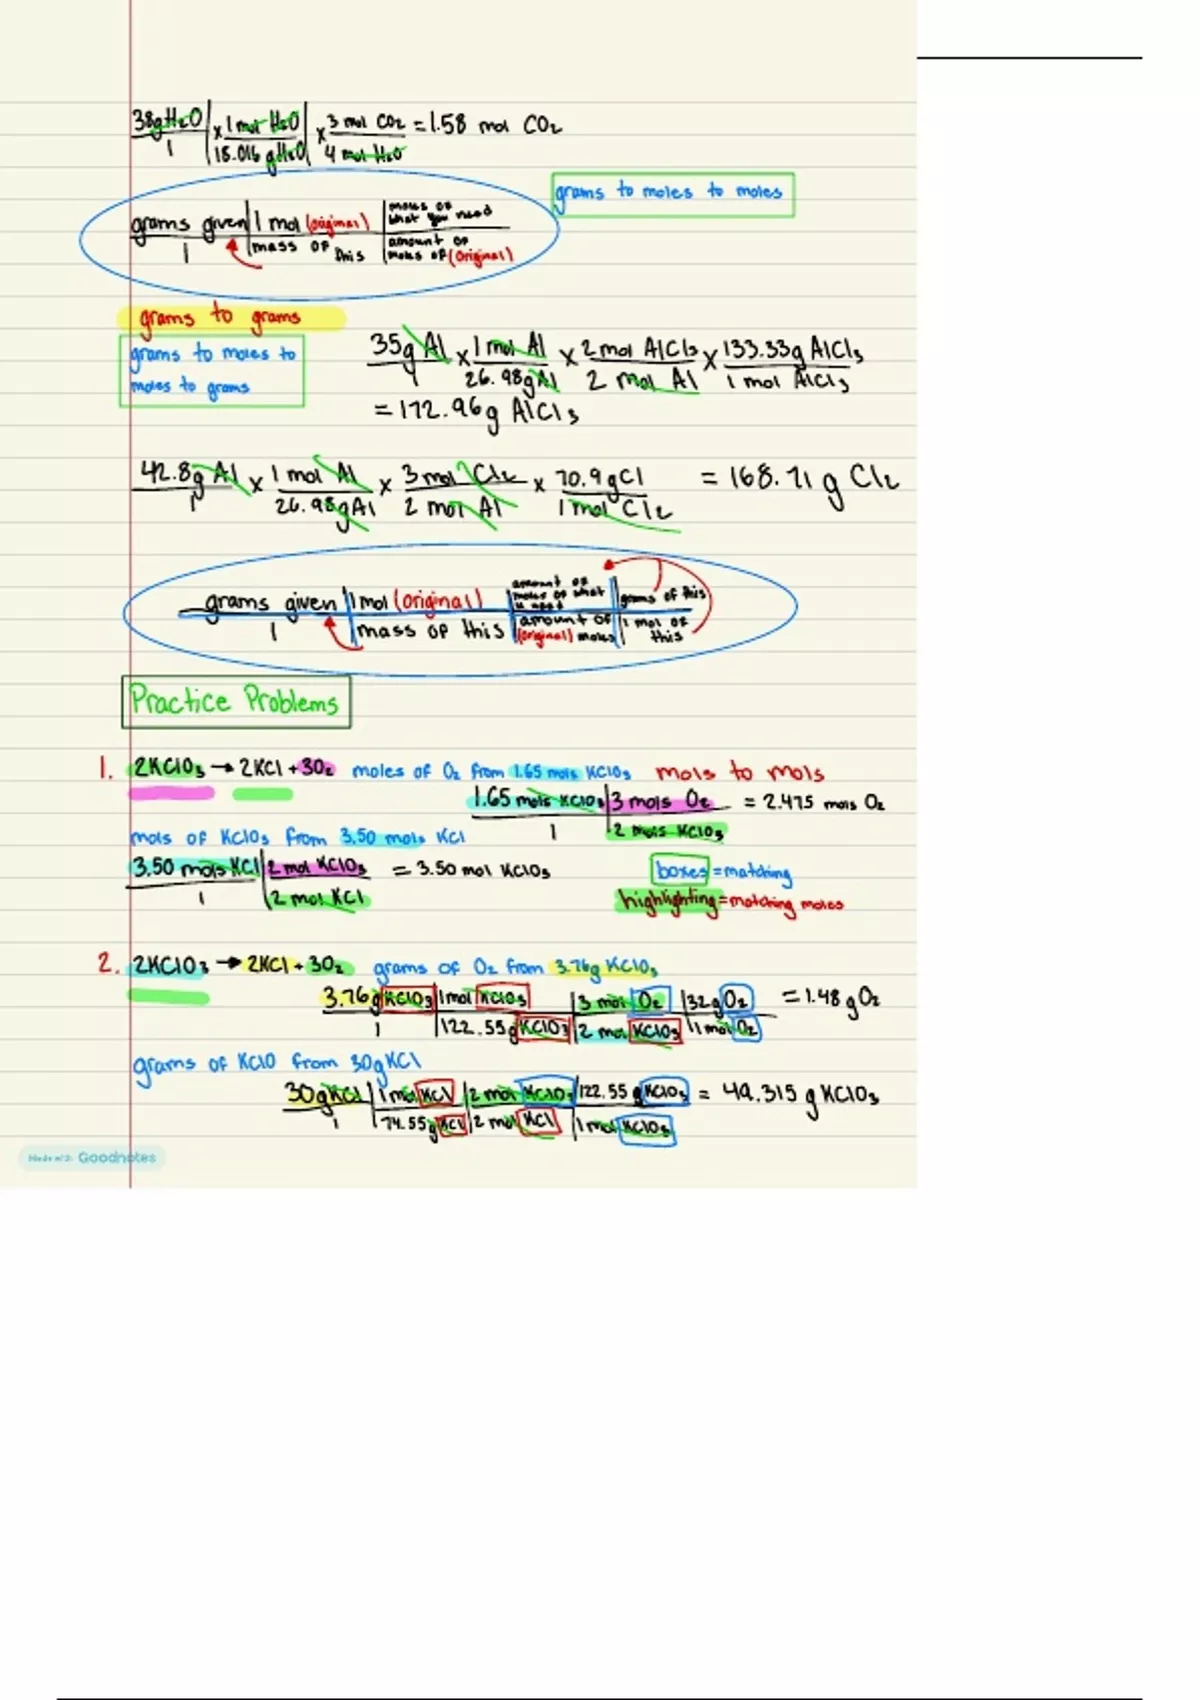 38gH₂O/1 × 1 mol H₂O/18.016 gH₂O × 3 mol CO₂/4 mol H₂O = 1.58 mol CO₂
grams to moles to moles
grams given/1 | 1 mol (original)/mass of this | moles of what you need/amount of moles of (original)
grams to grams
grams to moles to
moles to grams
35g Al/1 × 1 mol Al/26.98gAl × 2 mol AlCl₃/2 mol Al × 133.33g AlCl₃/1 mol AlCl₃
= 172.96g AlCl₃
42.8g Al/1 × 1 mol Al/26.98gAl × 3 mol Cl₂/2 mol Al × 70.9gCl/1 mol Cl₂ = 168.71 g Cl₂
grams given/1 | 1 mol (original)/mass of this | amount of moles of what u need/amount of (original) moles | grams of this/1 mol of this
Practice Problems
1. 2KClO₃ → 2KCl + 3O₂ moles of O₂ from 1.65 mols KClO₃ mols to mols
1.65 mols KClO₃/1 | 3 mols O₂/2 mols KClO₃ = 2.475 mols O₂
mols of KClO₃ from 3.50 mols KCl
3.50 mols KCl/1 | 2 mol KClO₃/2 mol KCl = 3.50 mol KClO₃
boxes = matching
highlighting = matching moles
2. 2KClO₃ → 2KCl + 3O₂ grams of O₂ from 3.76g KClO₃
3.76g KClO₃/1 | 1 mol KClO₃/122.55g KClO₃ | 3 mol O₂/2 mol KClO₃ | 32g O₂/1 mol O₂ = 1.48 g O₂
grams of KClO from 30gKCl
30gKCl/1 | 1 mol KCl/74.55g KCl | 2 mol KClO₃/2 mol KCl | 122.55 g KClO₃/1 mol KClO₃ = 49.315 g KClO₃
Goodnotes